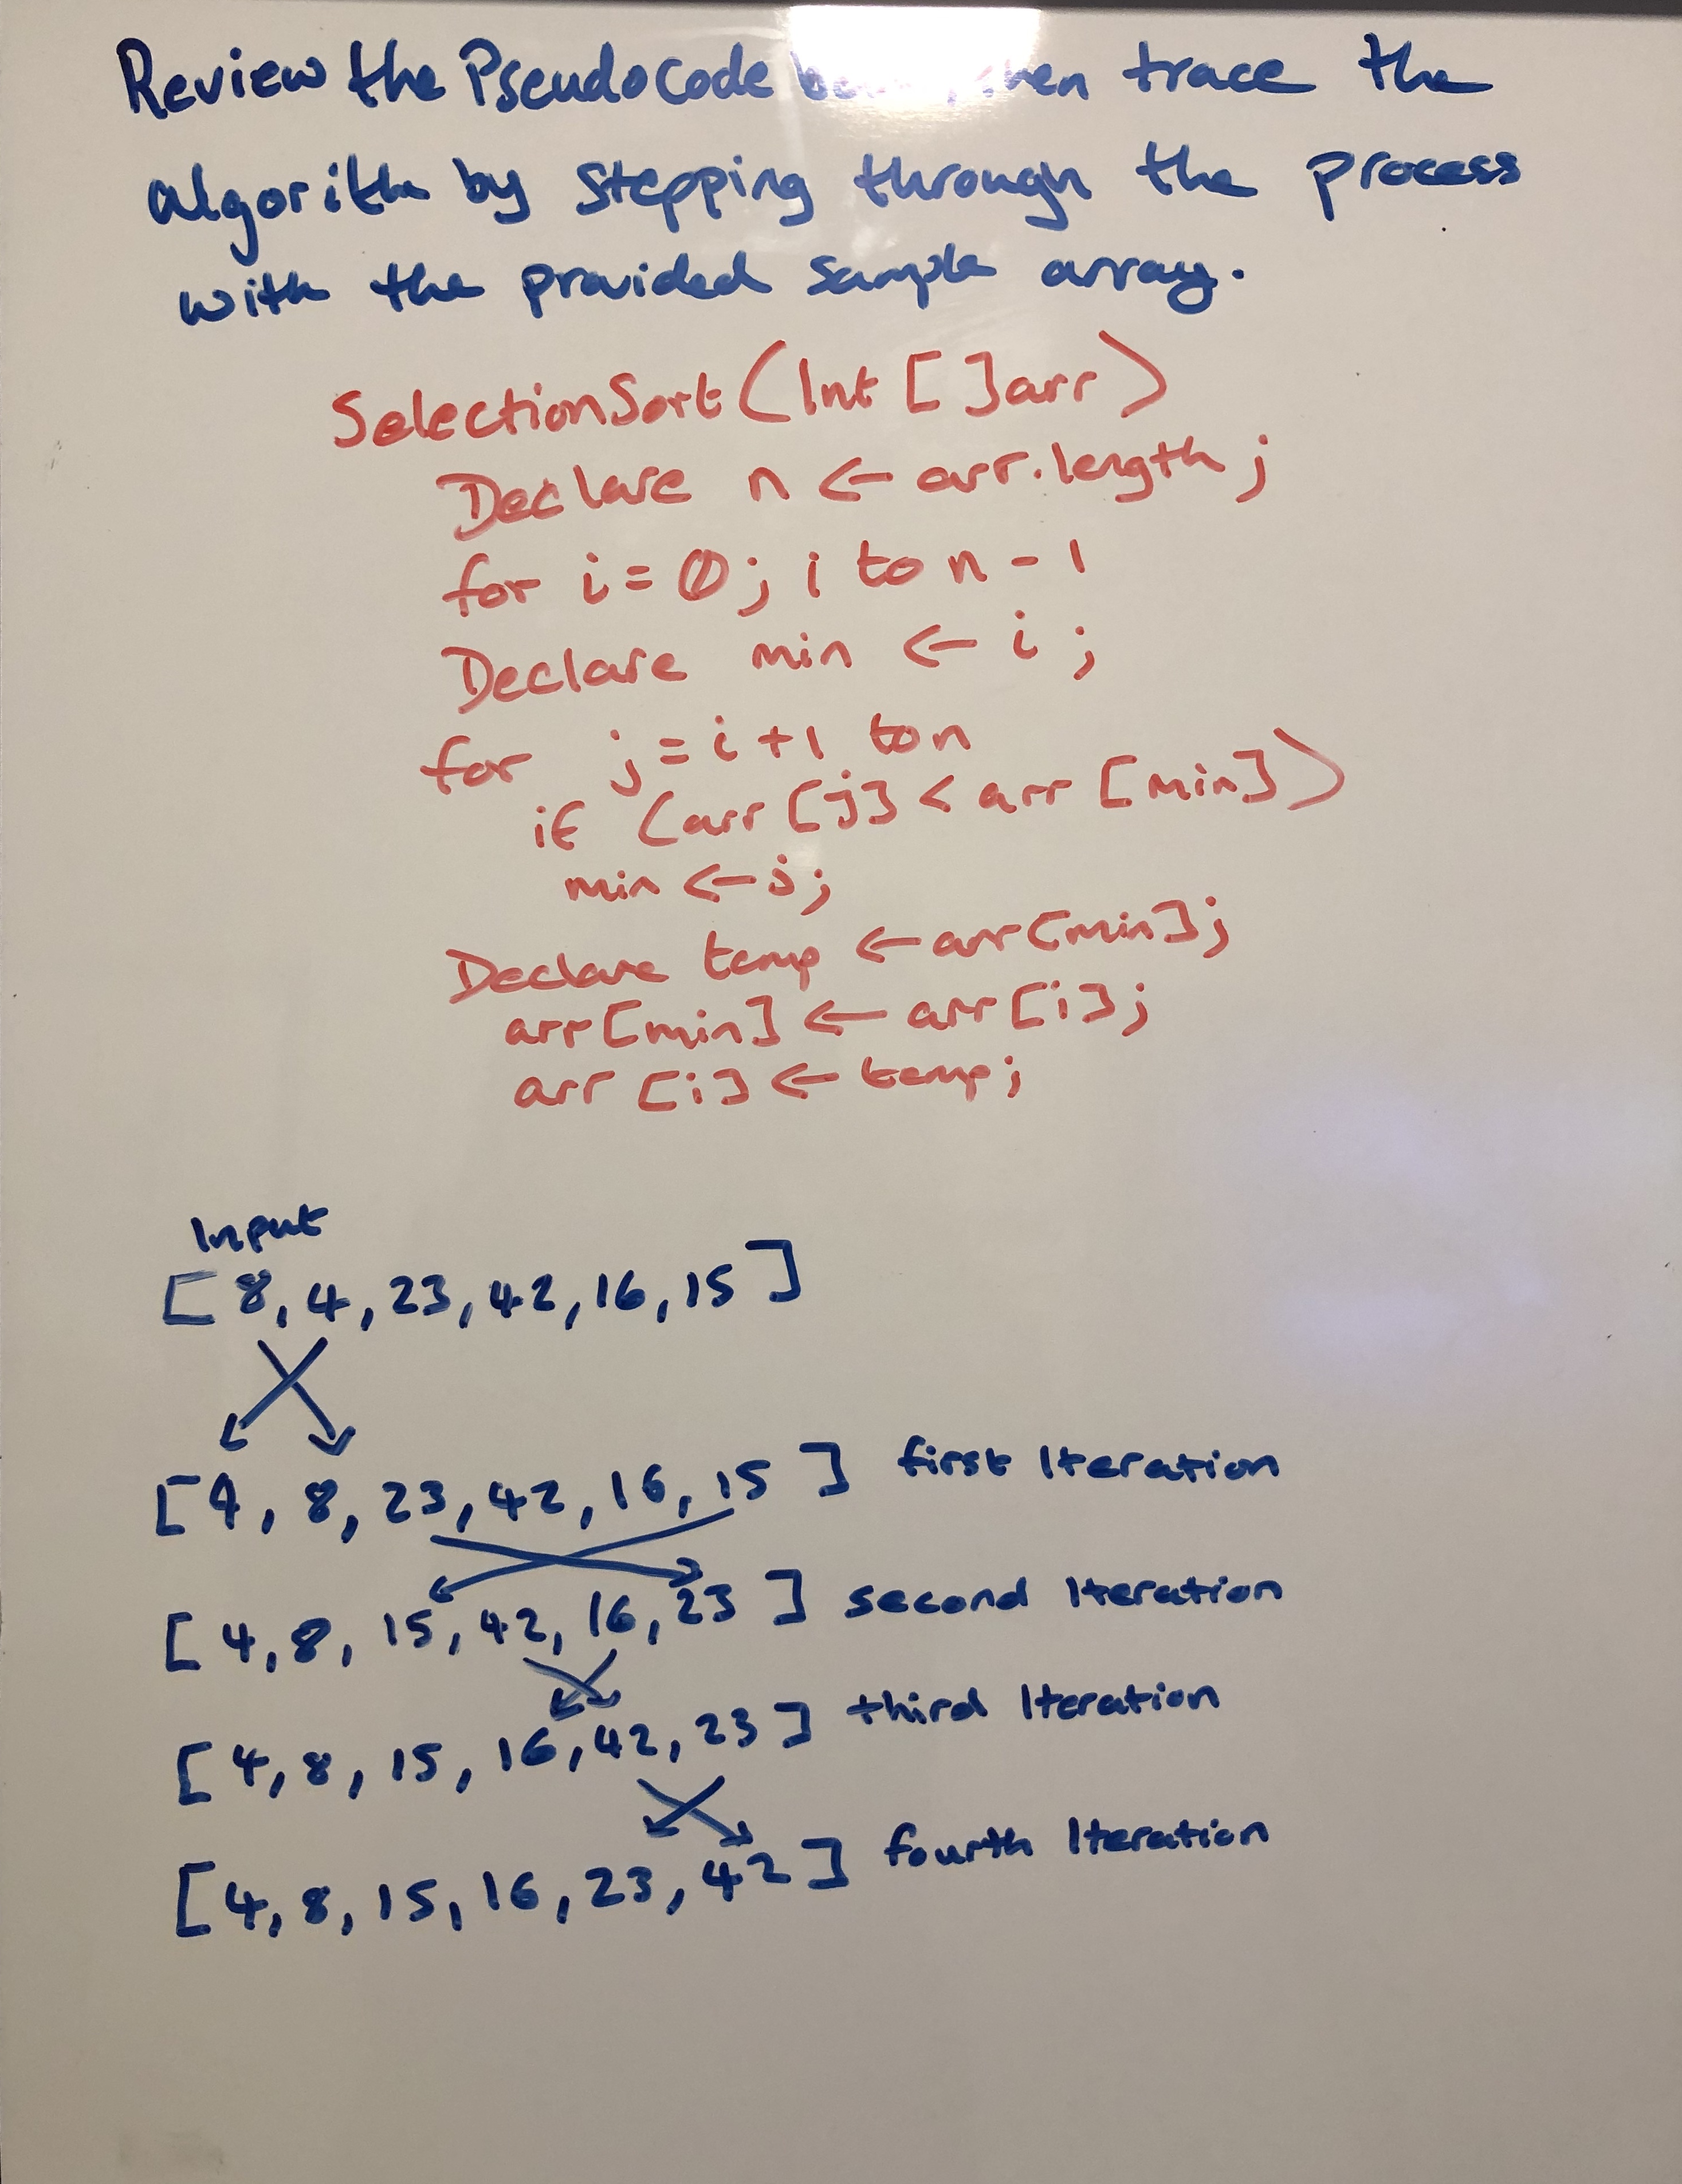 Review the Pseudocode then trace the
algorithm by stepping through the process
with the provided sample array.
SelectionSort(Int []arr)
Declare n <- arr.length;
for i = 0; i to n - 1
Declare min <- i;
for j = i + 1 to n
if (arr[j] < arr[min])
min <- j;
Declare temp <- arr[min];
arr[min] <- arr[i];
arr[i] <- temp;
Input
[8, 4, 23, 42, 16, 15]
[4, 8, 23, 42, 16, 15] first Iteration
[4, 8, 15, 42, 16, 23] second Iteration
[4, 8, 15, 16, 42, 23] third Iteration
[4, 8, 15, 16, 23, 42] fourth Iteration